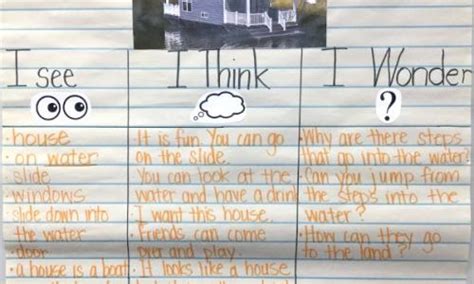 I see
I Think
I Wonder
?
• house
• on water
slide
• windows
slide down into
the water
• door
• a house is a boat
• It is fun. You can go
on the slide.
You can look at the
water and have a drink
I want this house.
• Friends can come
over and play.
• It looks like a house
• Why are there steps
that go into the water?
• Can you jump from
the steps into the
water?
• How can they go
to the land?